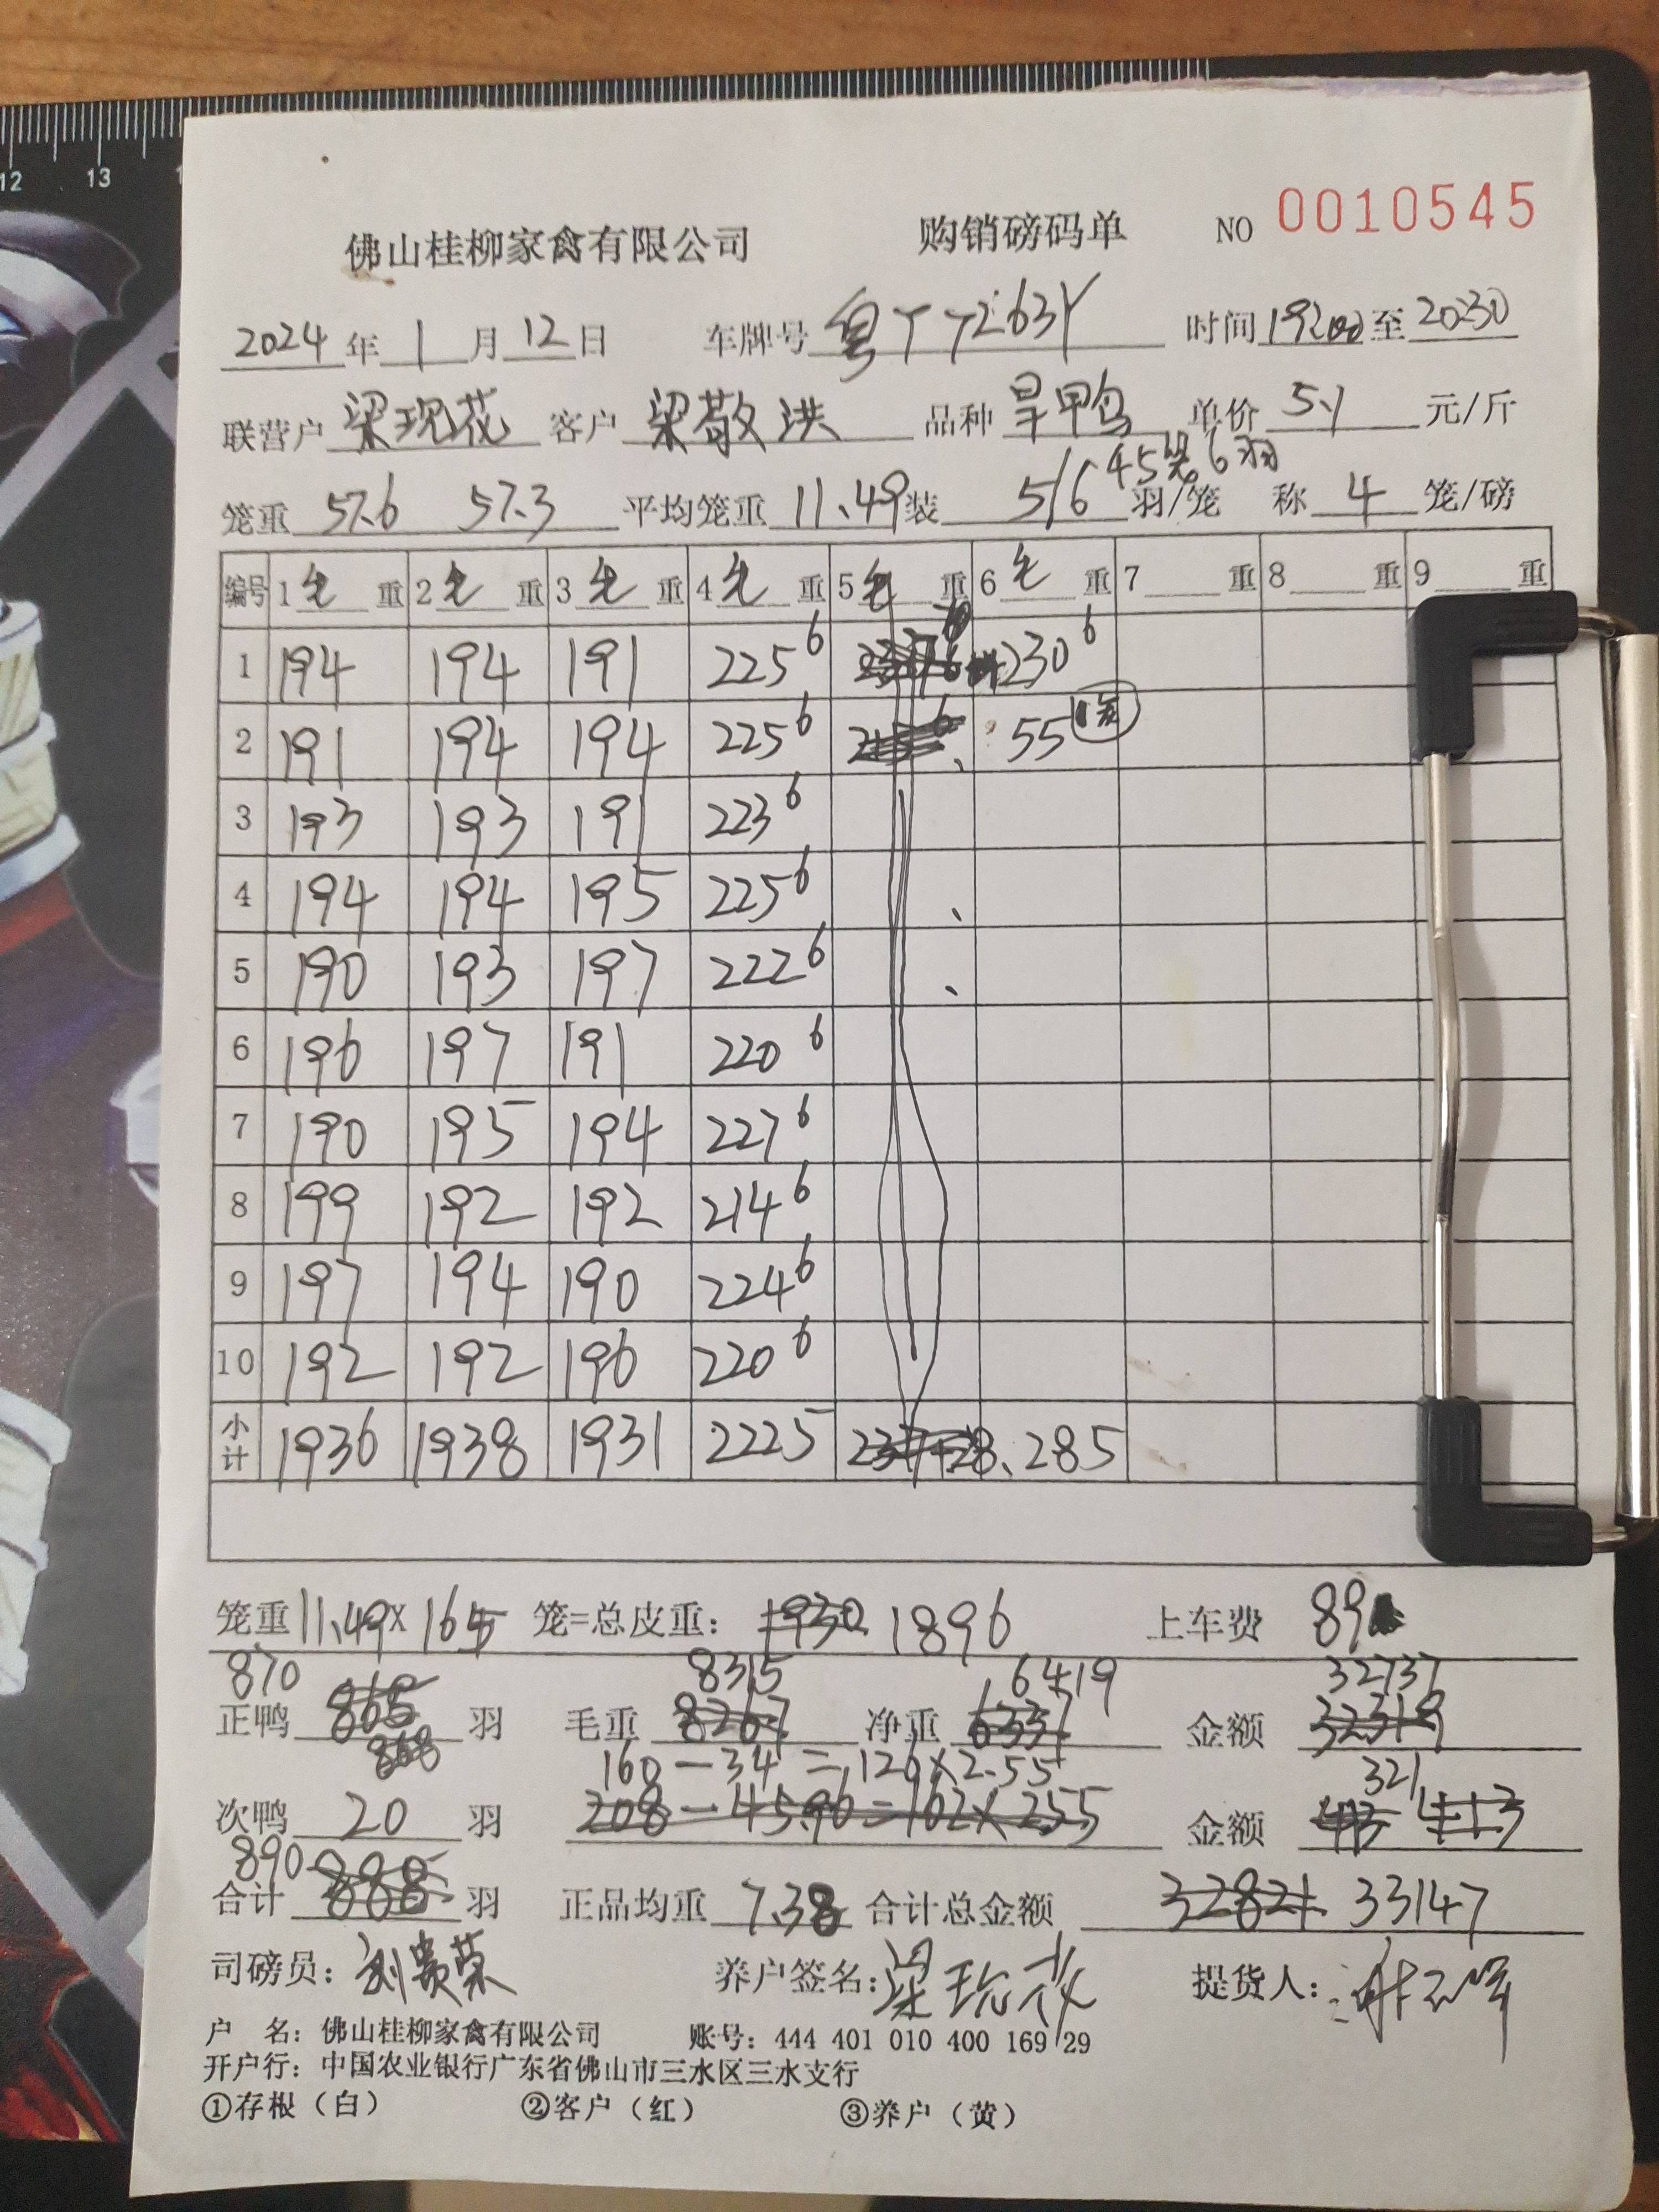 12 13
佛山桂柳家禽有限公司 购销磅码单 NO 0010545
2024 年 1 月 12 日 车牌号 时间 至 2030
联营户 客户 梁敬洪 品种 旱鸭 单价 5.1 元/斤
45笼6羽
笼重 57.6 57.3 平均笼重 11.49 装 5/6 羽/笼 称 4 笼/磅
编号 1 毛 重 2 毛 重 3 毛 重 4 毛 重 5 毛 重 6 毛 重 7 重 8 重 9 重
1 194 194 191 225 6 230 6
2 191 194 194 225 6 55
3 193 193 191 223 6
4 194 194 195 225 6
5 190 193 197 222 6
6 196 197 191 220 6
7 190 195 194 227 6
8 199 192 192 214 6
9 197 194 190 224 6
10 192 192 196 220 6
小计 1936 1938 1931 2225 285
笼重 11.49 X 165 笼=总皮重: 1930 1896 上车费 89
870 8315 6419 32737
正鸭 868 羽 毛重 8267 净重 6337 金额 32319
868
160-34=126×2.55 321
次鸭 20 羽 208-45.96=162×255 金额 413 413
890
合计 888 羽 正品均重 7.38 合计总金额 32821 33147
司磅员: 刘贵荣 养户签名: 提货人:
户 名: 佛山桂柳家禽有限公司 账号: 444 401 010 400 169 29
开户行: 中国农业银行广东省佛山市三水区三水支行
①存根(白) ②客户(红) ③养户(黄)